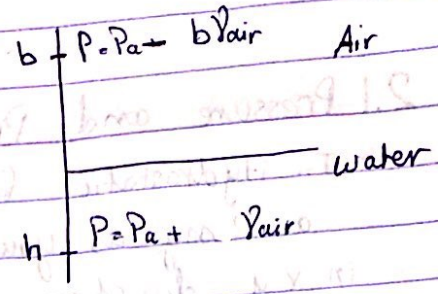 b P=Pa- bγair Air
water
h P=Pa+ γair